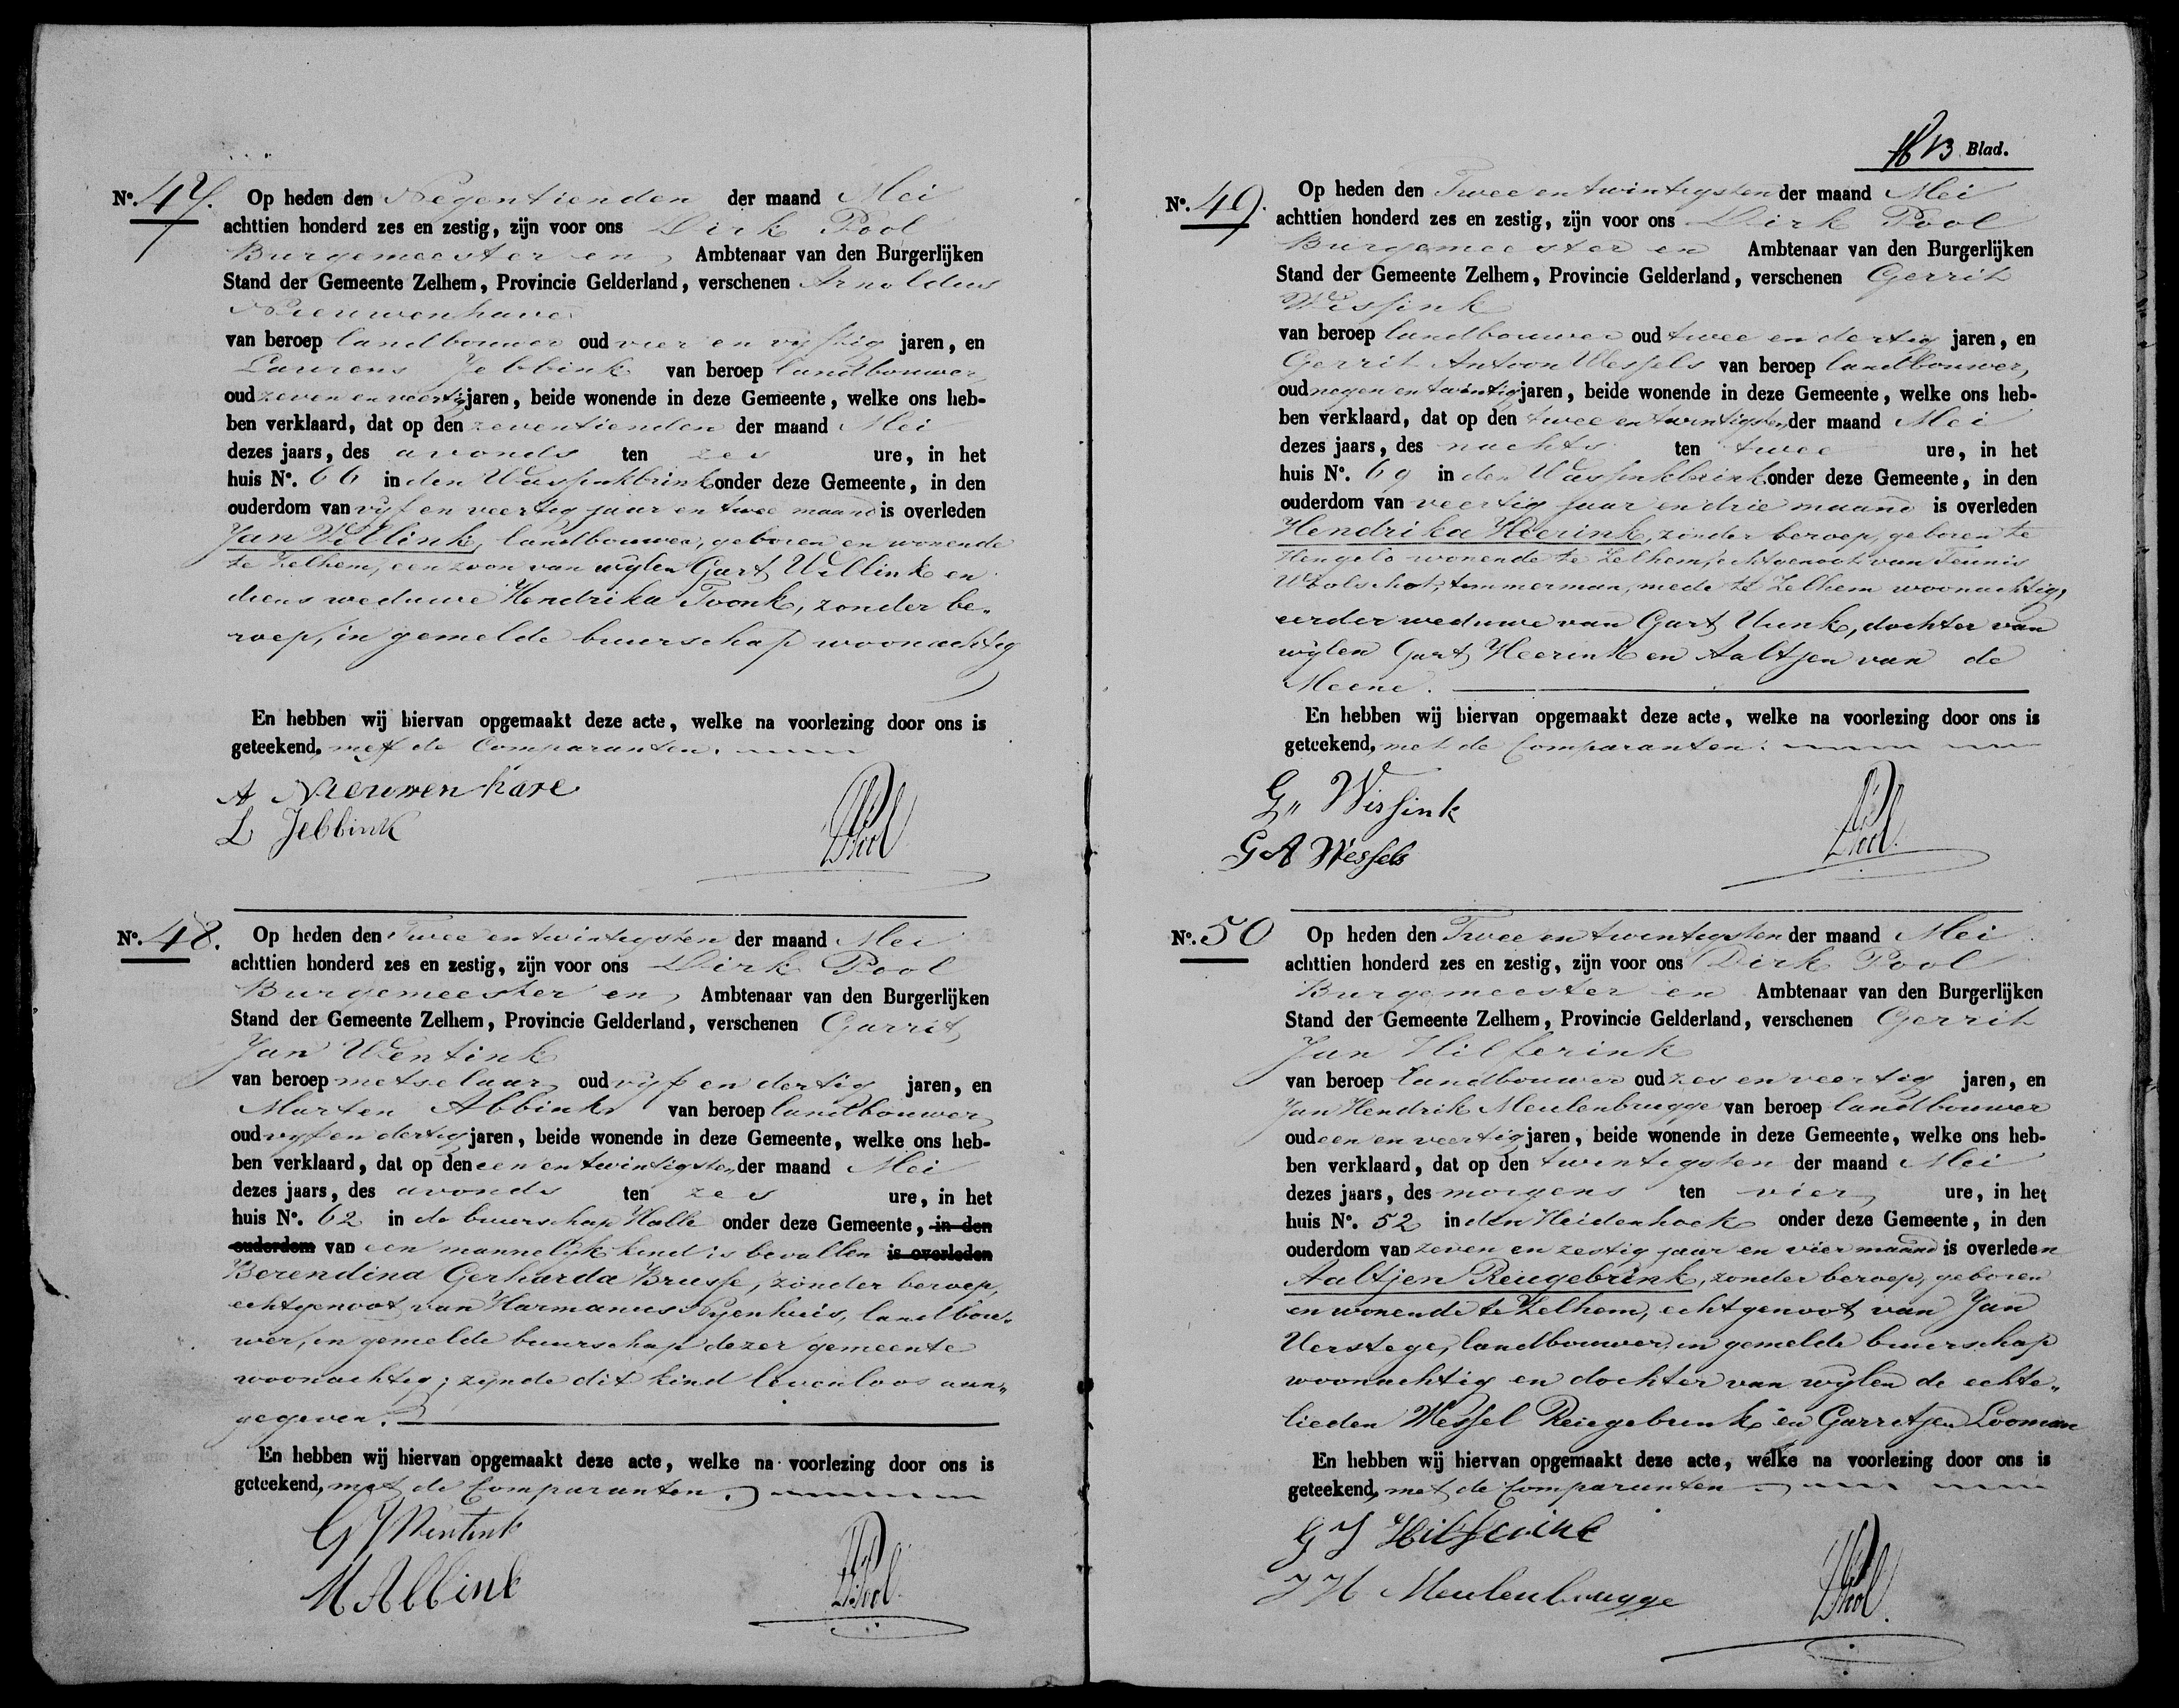 Nº. 47. Op heden den Negentienden der maand Mei
achttien honderd zes en zestig, zijn voor ons Dirk Pool
Burgemeester en Ambtenaar van den Burgerlijken
Stand der Gemeente Zelhem, Provincie Gelderland, verschenen Arnoldus
Nieuwenhave
van beroep landbouwer oud vier en vyftig jaren, en
Laurens Jebbink van beroep landbouwer
oud zeven en veertig jaren, beide wonende in deze Gemeente, welke ons heb-
ben verklaard, dat op den zeventienden der maand Mei
dezes jaars, des avonds ten zes ure, in het
huis Nº. 66 in den Wassinkbrink onder deze Gemeente, in den
ouderdom van vyf en veertig jaar en twee maand is overleden
Jan Willink, landbouwer, geboren en wonende
te Zelhem, een zoon van wylen Gart Willink en
diens weduwe Hendrika Tvonk, zonder be„
roep, in gemelde buurschap woonachtig
En hebben wij hiervan opgemaakt deze acte, welke na voorlezing door ons is
geteekend, met de Comparanten.
A Nieuwenhave
L Jebbink
DPool
Nº. 48. Op heden den Twee en twintigsten der maand Mei
achttien honderd zes en zestig, zijn voor ons Dirk Pool
Burgemeester en Ambtenaar van den Burgerlijken
Stand der Gemeente Zelhem, Provincie Gelderland, verschenen Garrit
Jan Wentink
van beroep metselaar oud vyf en dertig jaren, en
Marten Abbink van beroep landbouwer
oud vyf en dertig jaren, beide wonende in deze Gemeente, welke ons heb-
ben verklaard, dat op den een en twintigsten der maand Mei
dezes jaars, des avonds ten zes ure, in het
huis Nº. 62 in de buurschap Halle onder deze Gemeente, in den
ouderdom van een mannelyk kind is bevallen is overleden
Berendina Gerharda Brusse, zonder beroep,
echtgenoot van Harmanus Nyenhuis, landbou„
wer, in gemelde buurschap dezer gemeente
woonachtig; zynde dit kind levenloos aan„
gegeven.
En hebben wij hiervan opgemaakt deze acte, welke na voorlezing door ons is
geteekend, met de Comparanten.
G J Wentink
M Abbink
DPool
13 Blad.
Nº. 49. Op heden den Twee en twintigsten der maand Mei
achttien honderd zes en zestig, zijn voor ons Dirk Pool
Burgemeester en Ambtenaar van den Burgerlijken
Stand der Gemeente Zelhem, Provincie Gelderland, verschenen Gerrit
Wissink
van beroep landbouwer oud twee en dertig jaren, en
Gerrit Antoon Wessels van beroep landbouwer,
oud negen en twintig jaren, beide wonende in deze Gemeente, welke ons heb-
ben verklaard, dat op den twee en twintigsten der maand Mei
dezes jaars, des nachts ten twee ure, in het
huis Nº. 69 in den Wassinkbrink onder deze Gemeente, in den
ouderdom van veertig jaar en drie maand is overleden
Hendrika Heerink, zonder beroep, geboren te
Hengelo wonende te Zelhem, echtgenoot van Teunis
Wolschot, timmerman, mede te Zelhem woonachtig,
eerder weduwe van Gart Uunk, dochter van
wylen Gart Heerink en Aaltjen van de
Meene.
En hebben wij hiervan opgemaakt deze acte, welke na voorlezing door ons is
geteekend, met de Comparanten.
G„ Wissink
G A Wessels
DPool.
Nº. 50 Op heden den Twee en twintigsten der maand Mei
achttien honderd zes en zestig, zijn voor ons Dirk Pool
Burgemeester en Ambtenaar van den Burgerlijken
Stand der Gemeente Zelhem, Provincie Gelderland, verschenen Gerrit
Jan Hilferink
van beroep landbouwer oud zes en veertig jaren, en
Jan Hendrik Meulenbrugge van beroep landbouwer
oud een en veertig jaren, beide wonende in deze Gemeente, welke ons heb-
ben verklaard, dat op den twintigsten der maand Mei
dezes jaars, des morgens ten vier ure, in het
huis Nº. 52 in den Heidenhoek onder deze Gemeente, in den
ouderdom van zeven en zestig jaar en vier maand is overleden
Aaltjen Reugebrink, zonder beroep, geboren
en wonende te Zelhem, echtgenoot van Jan
Verstege, landbouwer in gemelde buurschap
woonachtig en dochter van wylen de echte„
lieden Wessel Reugebrink en Garritjen Looman
En hebben wij hiervan opgemaakt deze acte, welke na voorlezing door ons is
geteekend, met de Comparanten
G J Hilferink
J H Meulenbrugge
DPool.